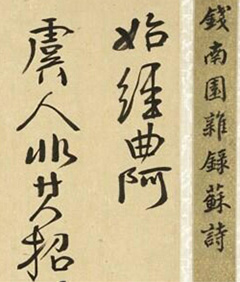 錢南園雜錄蘇詩
始經曲阿
虞人非其招